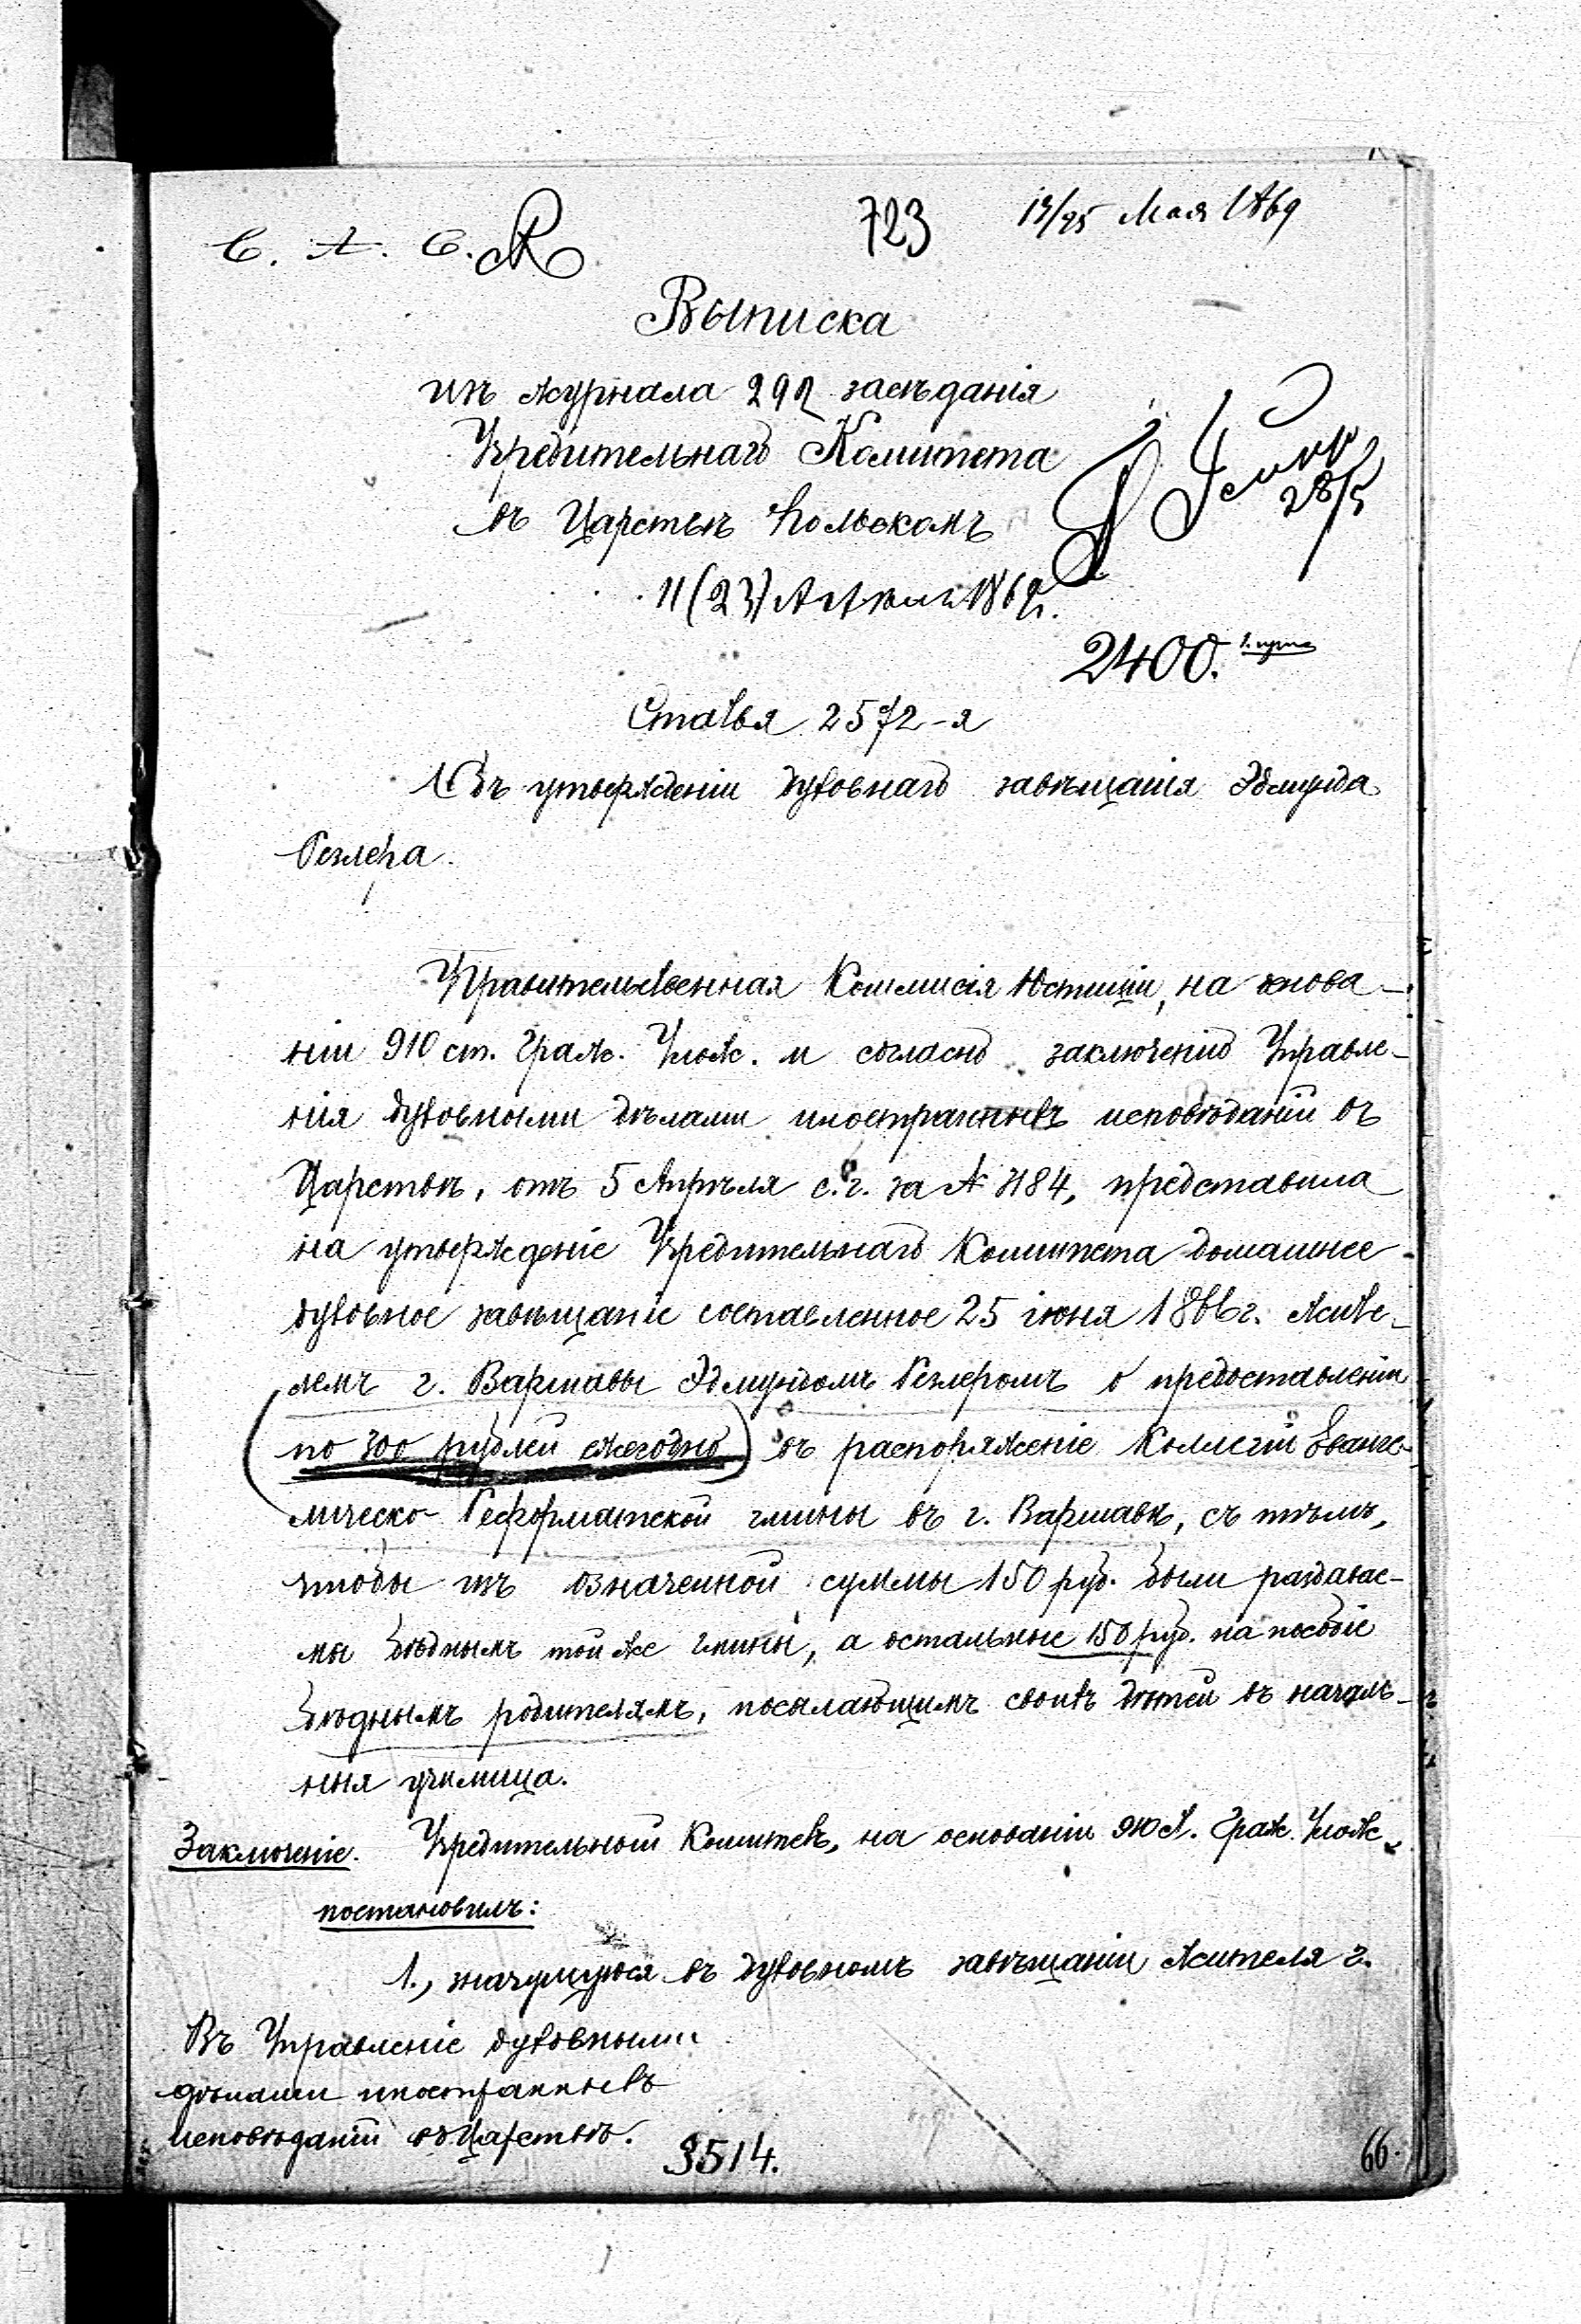 723 13/25 Мая 1869
С. А. С.
Выписка
изъ журнала 292 засѣданія
Учредительнаго Комитета
въ Царствѣ Польскомъ
28/5
11 (23) Апрѣля 1869 г.
2400.
Статья 2572-я
Объ утвержденіи духовнаго завѣщанія Эдмунда
Резлера.
Правительственная Коммисія Юстиціи, на основа-
ніи 910 ст. Граж. Улож. и согласно заключенію Управле-
нія духовными дѣлами иностранныхъ исповѣданій въ
Царствѣ, отъ 5 Апрѣля с. г. за № 3184, представила
на утвержденіе Учредительнаго Комитета домашнее
духовное завѣщаніе составленное 25 іюня 1866 г. жите-
лемъ г. Варшавы Эдмундомъ Резлеромъ о предоставленіи
по 300 рублей ежегодно въ распоряженіе Коллегіи Еванге-
лическо-Реформатской гмины въ г. Варшавѣ, съ тѣмъ,
чтобы изъ означенной суммы 150 руб. были раздавае-
мы бѣднымъ той же гмины, а остальные 150 руб. на пособіе
бѣднымъ родителямъ, посылающимъ своихъ дѣтей въ началь-
ныя училища.
Заключеніе. Учредительный Комитетъ, на основаніи 910 ст. Граж. Улож.
постановилъ:
1., значущуюся въ духовномъ завѣщаніи жителя г.
Въ Управленіе духовными
дѣлами иностранныхъ
исповѣданій въ Царствѣ.
3514.
66.